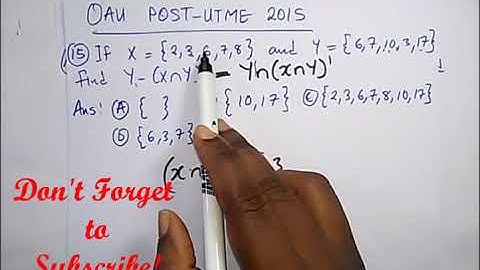 OAU POST-UTME 2015
(15) If X = {2,3,6,7,8} and Y = {6,7,10,3,17}
find Y-(x∩Y) - Y∩(x∩Y)'
Ans: (A) { } {10,17} (C) {2,3,6,7,8,10,17}
(D) {6,3,7}
(x∩ 3
Don't Forget
to
Subscribe!